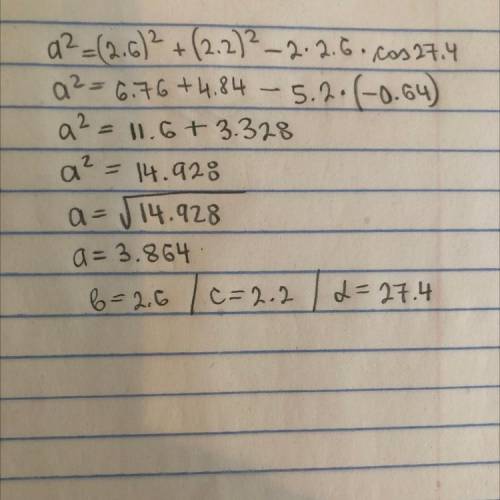 a²=(2.6)²+(2.2)²-2·2.6·cos27.4
a²=6.76+4.84-5.2·(-0.64)
a²=11.6+3.328
a²=14.928
a=√14.928
a=3.864
b=2.6 / c=2.2 / α=27.4